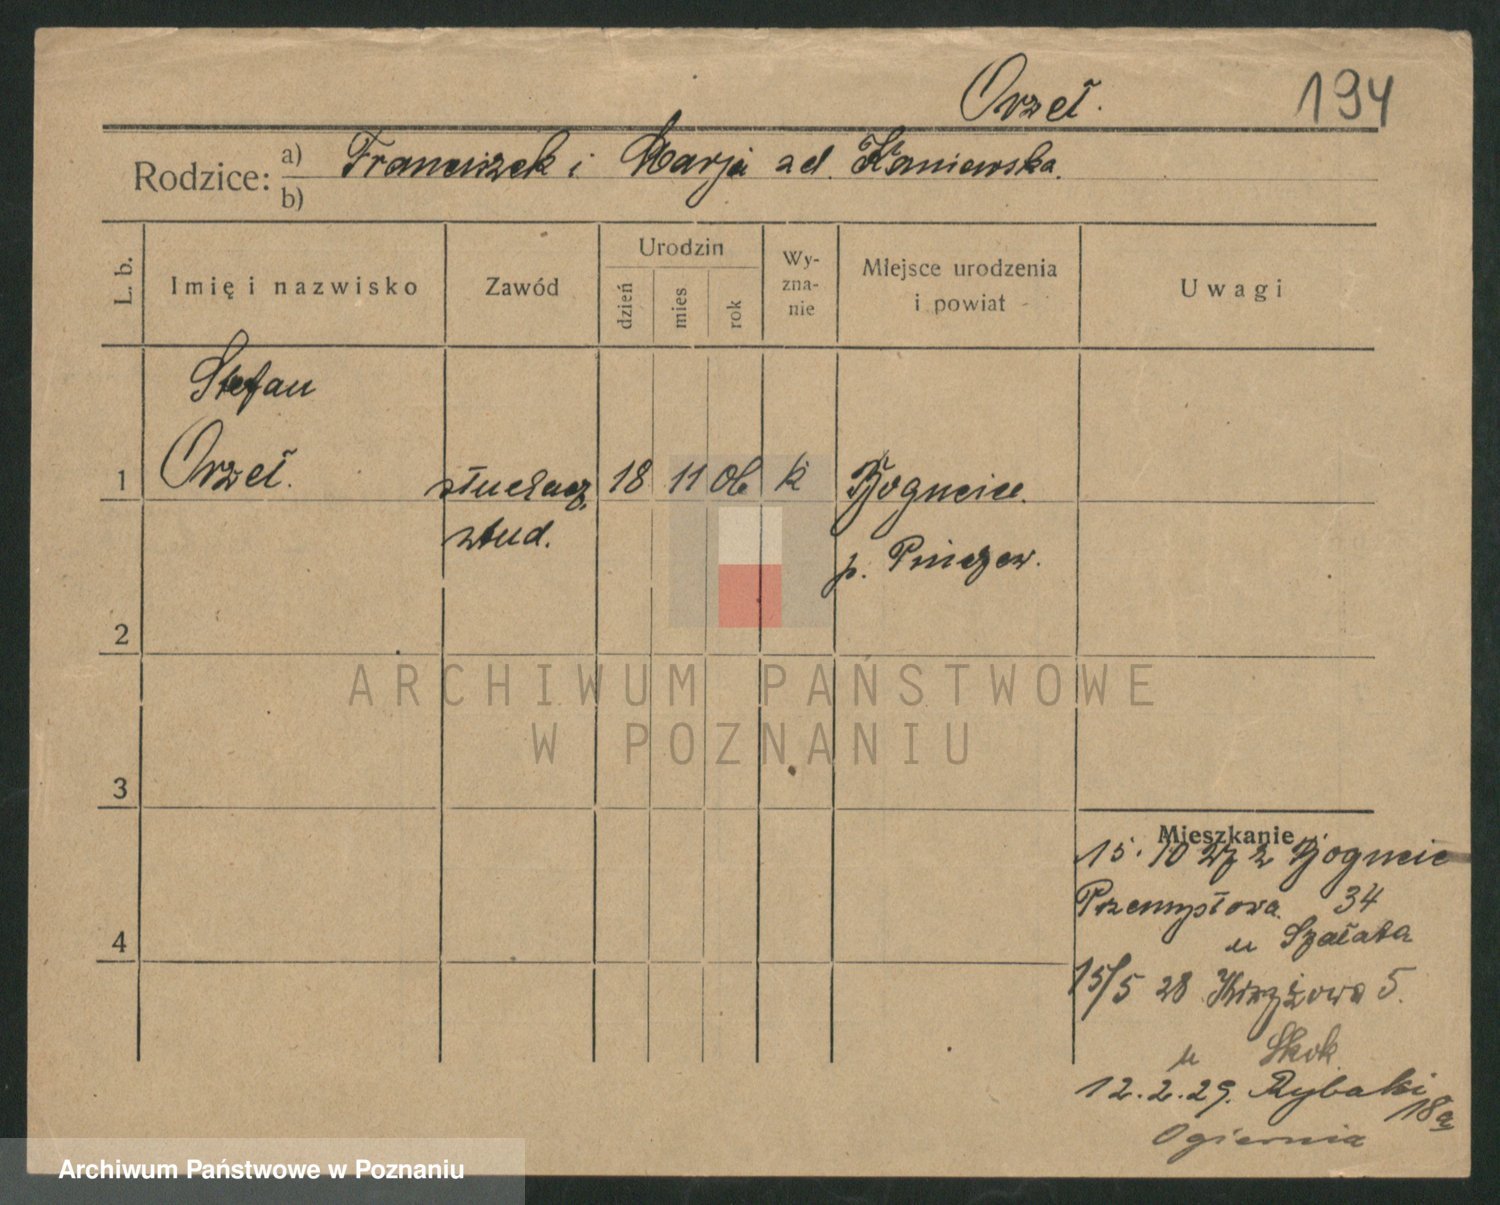 Orzeł.
194
Rodzice:
a) Franciszek i Marja zd. Kaniewska.
b)
L. b.
Imię i nazwisko
Zawód
Urodzin
dzień
mies
rok
Wy-
zna-
nie
Miejsce urodzenia
i powiat
Uwagi
Stefan
1 Orzeł. słuchacz 18 11 06 k
stud.
p. Pińczow.
2
3
4
Mieszkanie
15. 10 27 z
Przemysłowa 34
u Szałata
15/5 28 Krzyżowa 5.
u Skok
12.2.29. Rybaki
18a
ARCHIWUM PAŃSTWOWE
W POZNANIU
Archiwum Państwowe w Poznaniu